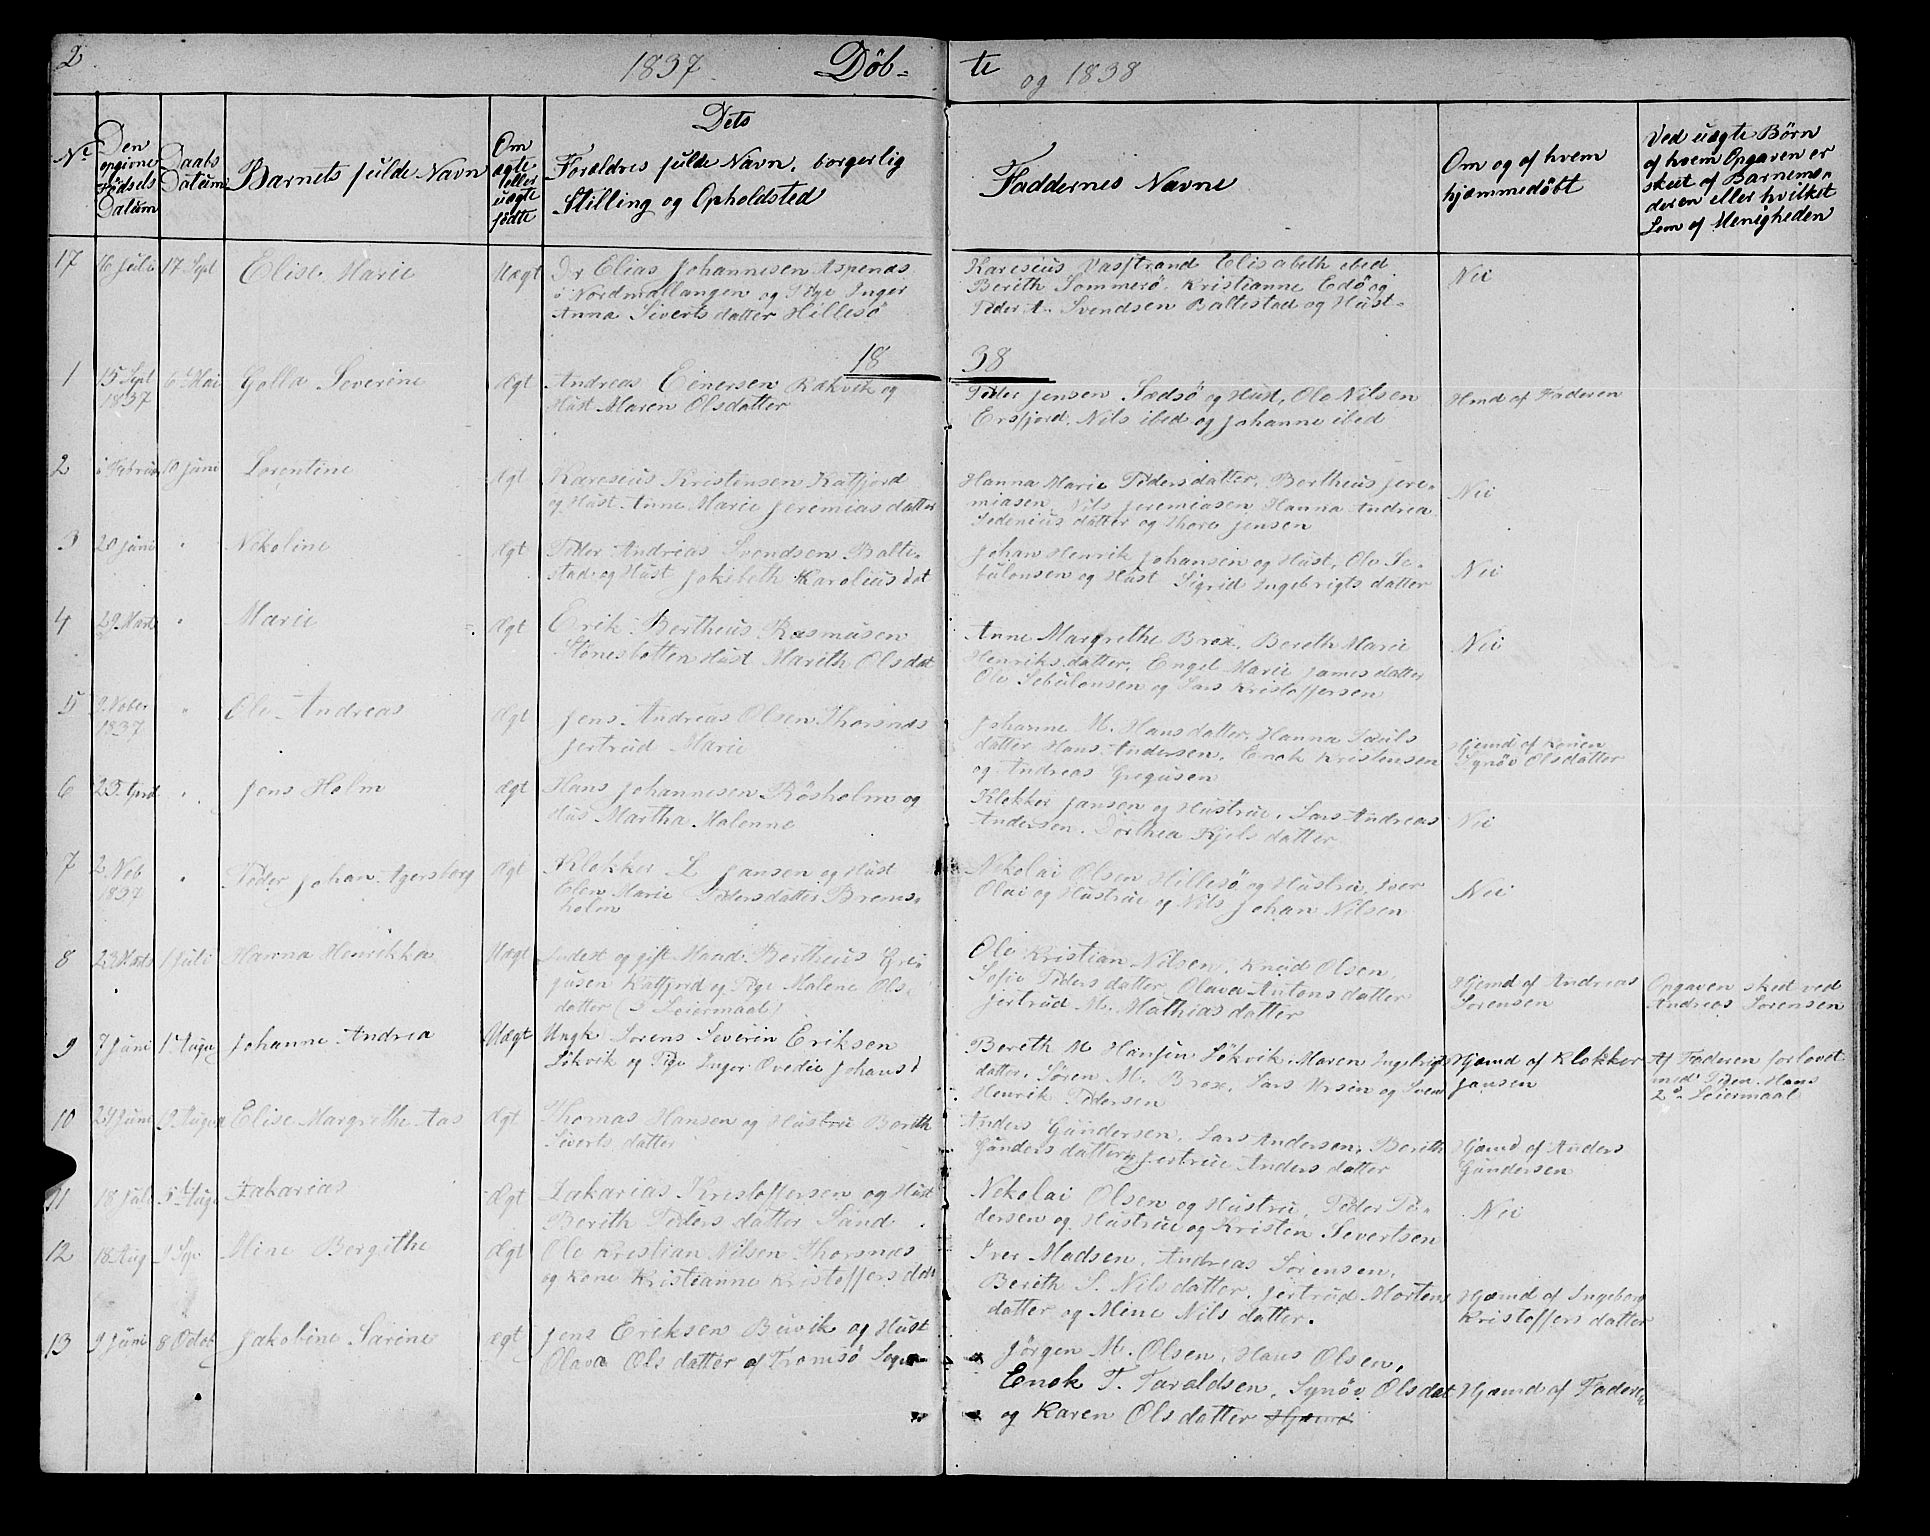 2
1837. Döb-
te og 1838
Nr
Den opgivne Födsels Datum
Daabs Datum
Barnets fulde Navn
Om ægte eller uægte födte
Dets Foræ­ldres fulde Navn, borgerlig Stilling og Opholdsted
Faddernes Navne
Om og af hvem hjæmmedöbt
Ved uægte Börn af hvem Opgaven er skeet af Barnemoderen eller hvilket Lem af Menigheden
17 16 Juli 17 Sept Elise Marie Uægt
Elias Johannesen Aspenæs
i Nordmallangen og Pige Inger
Anna Siverts datter Hillesö
Karesius Vasstrand Elisabeth ibed
Berith Sommerö, Kristianne Edö og
Peder A. Svendsen Baltestad og Hust-
Nei
18 38
1 15 Sept 1837 6 Mai Golla Severine Ægt
Andreas Einersen Rakvik og
Hust Maren Olsdatter
Peder Jensen Sedsö og Hust, Ole Nilsen
Ersfjord, Nils ibed og Johanne ibed
Hmd af Faderen
2 Februa 10 Juni Lorentine Ægt
Karesius Kristensen Katfjord
og Hust Anne Marie Jeremias datter
Hanna Marie Peders datter, Bertheus Jere-
miasen, Nils Jeremiasen Hanna Andrea
datter og Thore Jensen
Nei
3 20 Juni " Nekoline Ægt
Peder Andreas Svendsen Balte-
stad og Hust Jokibeth Karolius dat
Johan Henrik Johansen og Hust, Ole Se-
bulonsen og Hust Sigrid Ingebrigts datter
Nei
4 29 Marts " Marie Ægt
Erik Bertheus Rasmusen
Stönesbotten Hust Marith Olsdat
Anne Margrethe Brox, Bereth Marie
Henriks datter, Engel Marie James datter
Ole Sebulonsen og Lars Kristoffersen
Nei
5 2 Nober 1837 " Ole Andreas Ægt
Jens Andreas Olsen Thorsnæs
Jertrud Marie
Johanne M. Hans datter, Hanna Pauls
datter Hans Andersen, Enok Kristensen
og Andreas Gregusen
Hjemd af Konen
Synöv Olsdatter
6 25 April " Jens Holm Ægt
Hans Johannesen Rösholm og
Hus Martha Malenne
Klokker Jansen og Hustrue, Lars Andreas
Andersen, Dorthea Kjels datter
Nei
7 2 Nob 1837 " Peder Johan Agersborg Ægt
Klokker L Jansen og Hust
Elen Marie Peders datter Brems-
holm
Nekolai Olsen Hillesö og Hustru, Iver
Olai og Hustrue og Nils Johan Nilsen
Nei
8 23 Marts 1 Juli Hanna Henrikka Uægt
Inderst og gift Mand Bertheus Gre-
gusen Katfjord og Pige Malene Ols-
datter (3 Leiermaal)
Ole Kristian Nilsen, Knud Olsen
Sofie Peders datter, Olava Antons datter
Jertrud M. Mathias datter
Hjemd af Andreas
Sorensen
Opgaven sked ved
Andreas Sorensen
9 7 Juni 1 Augu Johanne Andrea Uægt
Ungk Sorens Severin Eriksen
Lökvik og Pige Inger Ovedie Johans d
Bereth M Hansen Lökvik, Maren Ingebrigts
datter, Sören M. Brox, Lars Ursin og Svend
Henrik Pedersen
Hjæmd af Klokker
Jansen
Af Faderen forlovet
med Pigen. Hans
2d Leiermaal
10 24 Juni 9 Augu Elise Margrethe Aas Ægt
Thomas Hansen og Hustrue Bereth
Siverts datter
Anders Gundersen, Lars Andersen, Berith
Gunders datter og Jertrue Anders datter
Hjæmd af Anders
Gundersen
11 18 Juli 5 Augu Zakarias Ægt
Zakarias Kristoffersen og Hust
Berith Peders datter Sand
Nekolai Olsen og Hustru, Peder Pe-
dersen og Hustrue og Kristen Severtsen
Nei
12 18 Aug 9 Sep Mine Bergithe Ægt
Ole Kristian Nilsen Thorsnæs
og Kone Kristianne Kristoffers datt
Iver Madsen, Andreas Sörensen,
Berith S. Nils datter, Jertrud Mortens
datter og Mine Nils datter.
Hjæmd af Ingeborg
Kristoffers datter
13 9 Juni 8 Octob Jakobine Sarine Ægt
Jens Eriksen Buvik og Hust
Olava Ols datter af Tromsö Sogn
Jörgen M. Olsen, Hans Olsen,
Enok T. Taraldsen, Synöv Olsdat
og Karen Ols datter Hjæmd
Hjæmd af Faderen